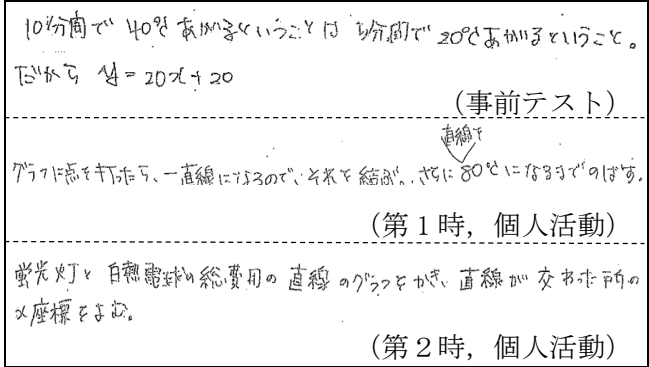 10分間で 40℃ あがるということは 5分間で 20℃あがるということ。
だから y = 20x + 20
(事前テスト)
直線を
グラフに点を打ったら、一直線になるので、それを結ぶ。さらに 80℃になるまでのばす。
(第1時，個人活動)
蛍光灯と 白熱電球の総費用の 直線 のグラフをかき、直線が 交わった所の
x座標をよむ。
(第2時，個人活動)